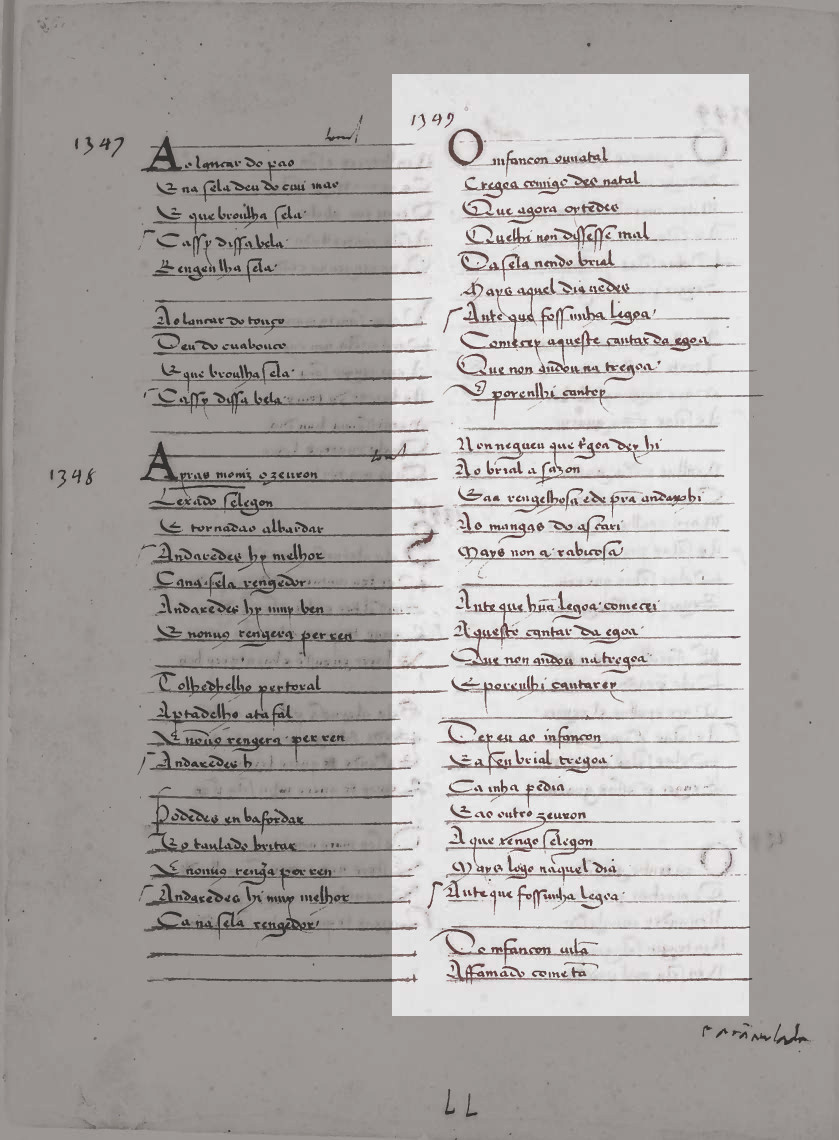 1347
Ao lançar do pao
E na sela deu do cuu mao
E que brouilha sela
Cassy dissa bela
Rengeu lha sela
Ao lançar do touço
Deu do cuabouco
E que brouilha sela
Cassy dissa bela
1348
Ayras moniz o zeuron
Leixado selegon
E tornadao albardar
Andaredes hy melhor
Cana sela rengedor
Andaredes hy muy ben
E nonuꝯ rengera per ren
Tolhedhelho pertoral
Aptadelho atafal
E nōuꝯ rengera per ren
Andaredes h
Podedes en bafordar
Eo taulado britar
E nonuꝯ rengā per ren
Andaredes hi muy melhor
Ca na sela rengedor
1349
O infançon ouuatal
Tregoa comigo des natal
Que agora oytēdes
Quelhi non dissesse mal
Da sela nendo brial
Mays aquel dia uedes
Ante que foss unha legoa
Comecey aqueste cantar da egoa
Que non ādou na tregoa
E porenlhi cantey
Non negueu que trgoa dey hi
Ao brial a sazon
Eaa rengelhosa ede pra andarohi
As mangas do ascari
Mays non a rabicosa
Ante que hūa legoa comecei
Aqueste cantar da egoa
Que non ādou na tregoa
E porenlhi cantarey
Dey eu ao infançon
Ea seu brial tregoa
Ca inha pedia
Eao outro zeuron
A que rengo selegon
Mays logo naquel dia
Ante que foss unha legoa
De infançon uilā
Affamado come cā
LL